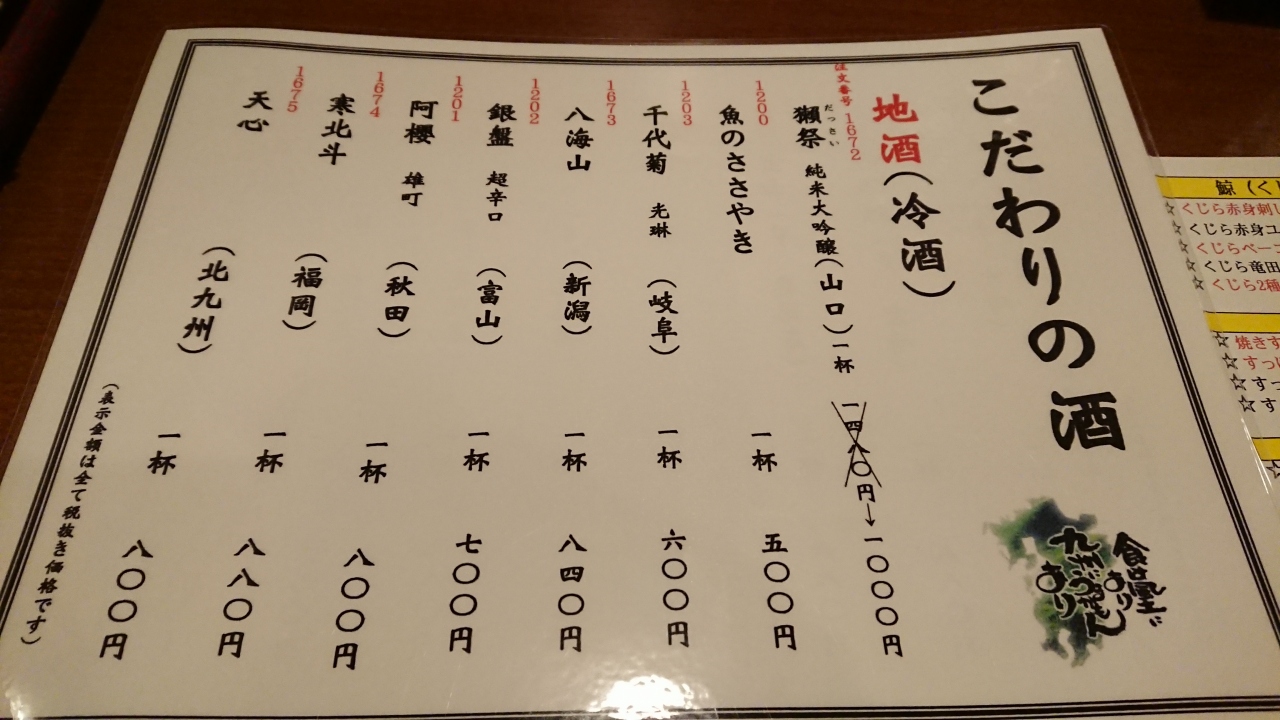 こだわりの酒
地酒(冷酒)
注文番号 1672
獺祭 純米大吟醸(山口)一杯 一四八〇円→一〇〇〇円
だっさい
1200
魚のささやき 一杯 五〇〇円
1203
千代菊 光琳 (岐阜) 一杯 六〇〇円
1673
八海山 (新潟) 一杯 八四〇円
1202
銀盤 超辛口 (富山) 一杯 七〇〇円
1201
阿櫻 雄町 (秋田) 一杯 八〇〇円
1674
寒北斗 (福岡) 一杯 八八〇円
1675
天心 (北九州) 一杯 八〇〇円
(表示金額は全て税抜き価格です)
食堂
あり
九州
あり
鯨(く
☆くじら赤身刺し
☆くじら赤身ユ
☆くじらベー
☆くじら竜田
☆くじら2種
☆焼きす
☆すっ
☆すっ
☆す
☆